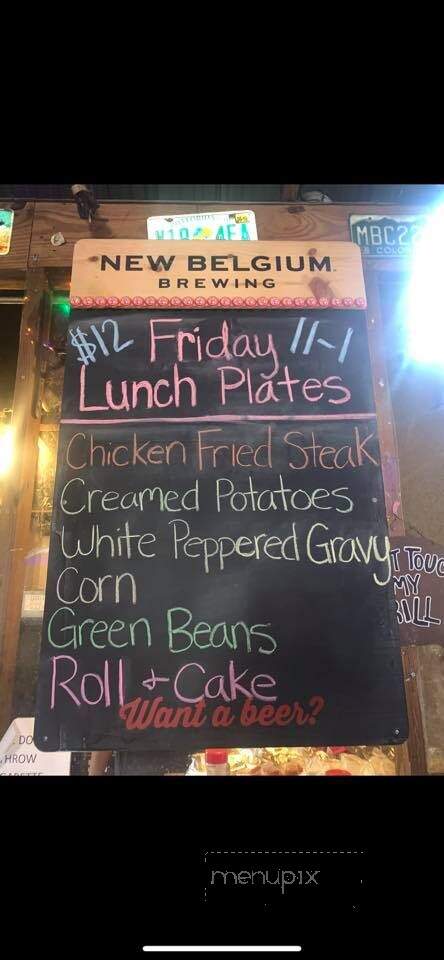 MBC22
COLO
NEW BELGIUM
BREWING
$12 Friday 11-1
Lunch Plates
Chicken Fried Steak
Creamed Potatoes
White Peppered Gravy
Corn
Green Beans
Roll & Cake
Want a beer?
T TOUC
MY
ILL
DO
HROW
menupix